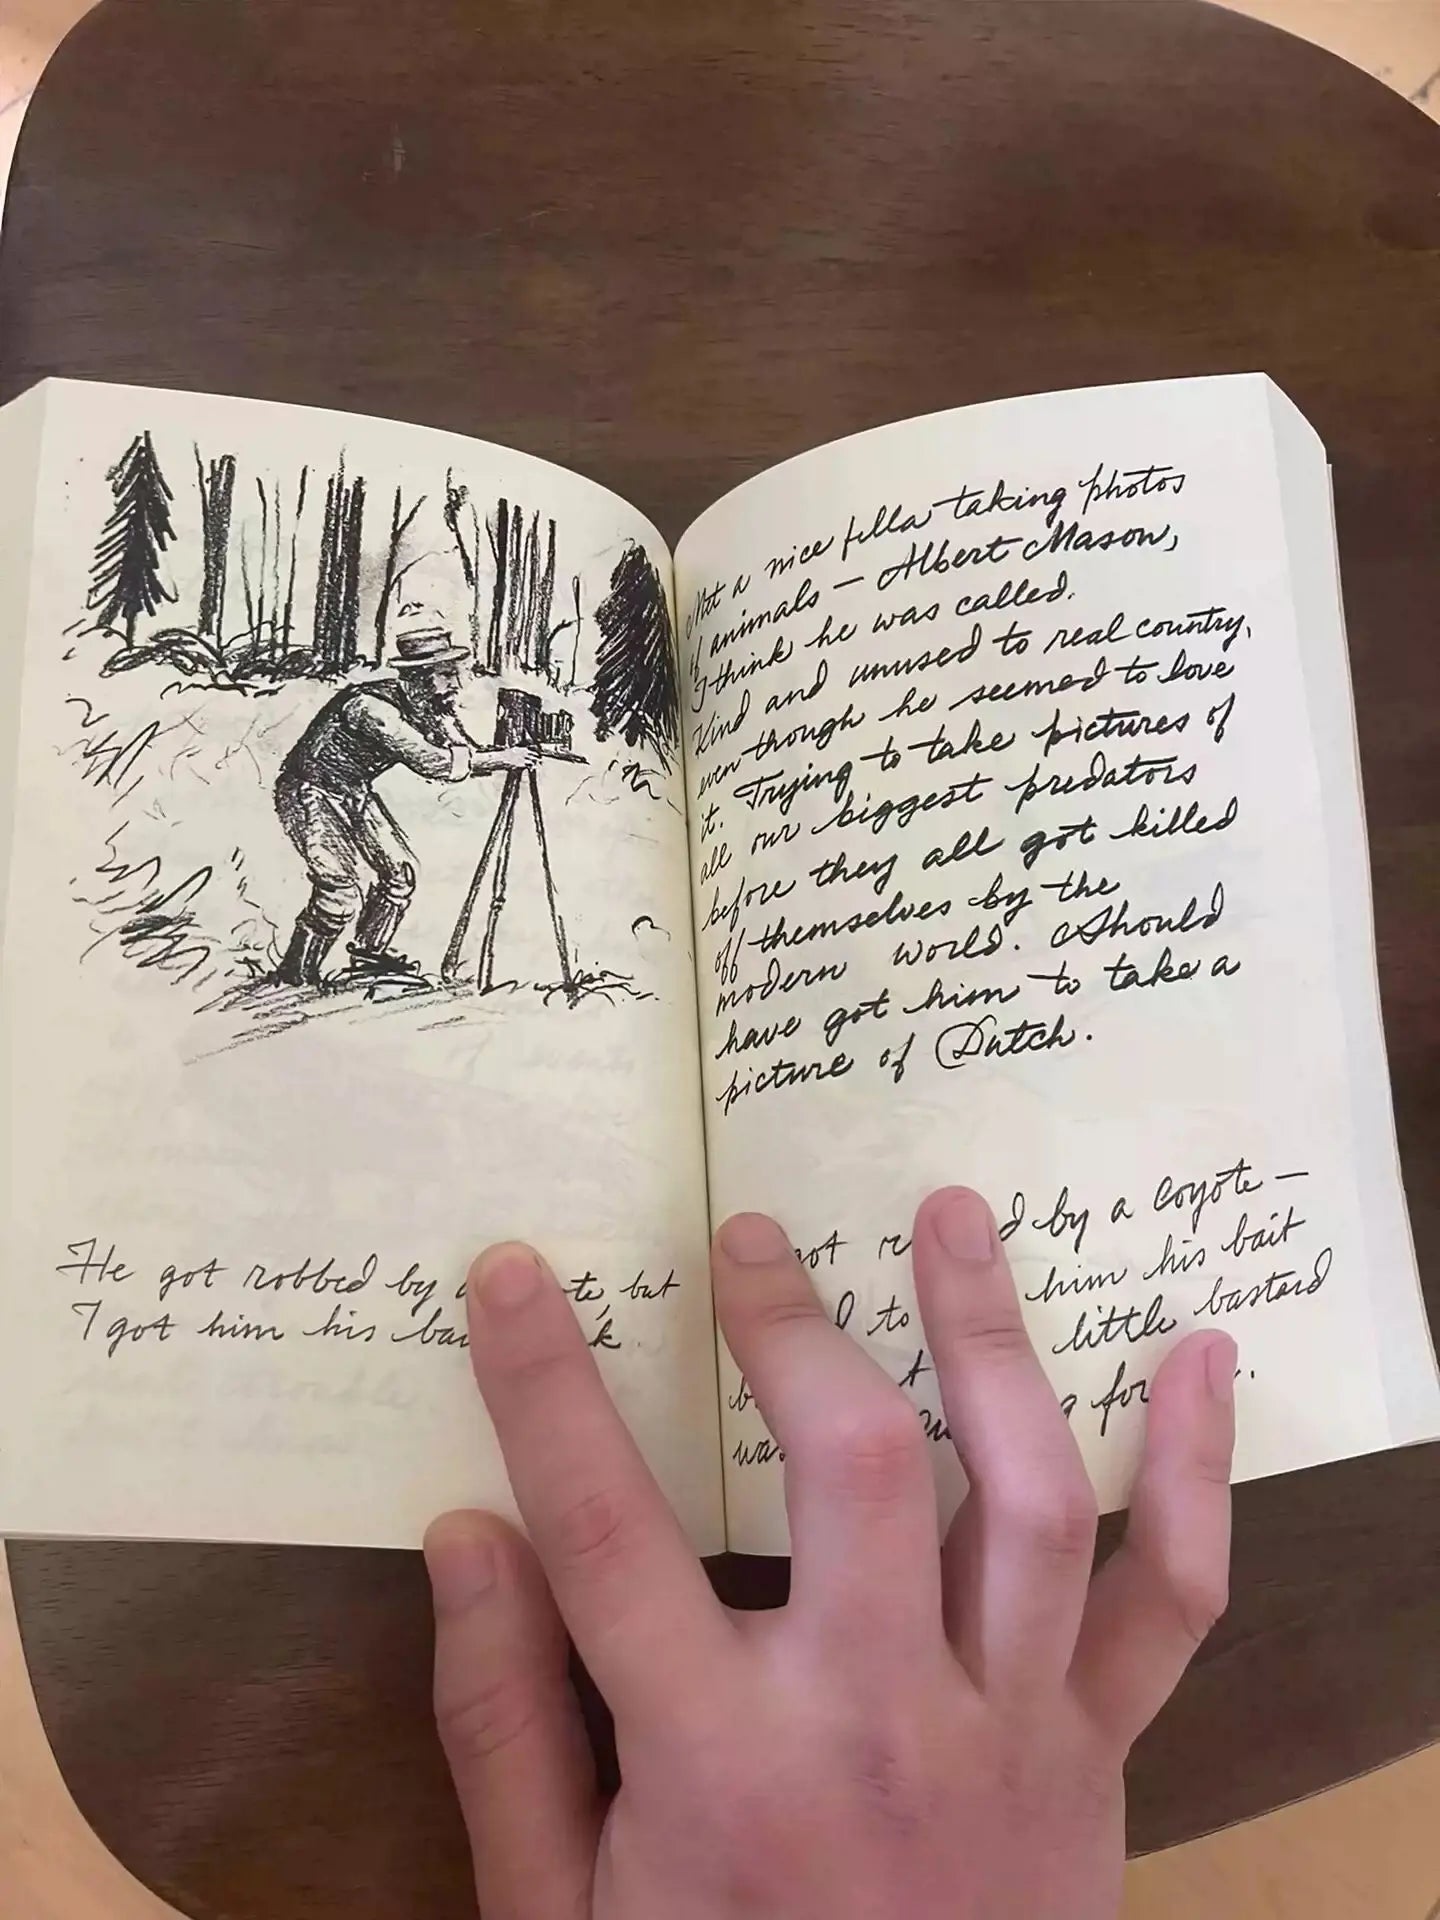 He got robbed by a te, but
I got him his ba k.
Met a nice fella taking photos
of animals — Albert Mason,
I think he was called.
Kind and unused to real country,
even though he seemed to love
it. Trying to take pictures of
all our biggest predators
before they all got killed
off themselves by the
modern world. Should
have got him to take a
picture of Dutch.
got by a coyote —
to him his bait
little bastard
was